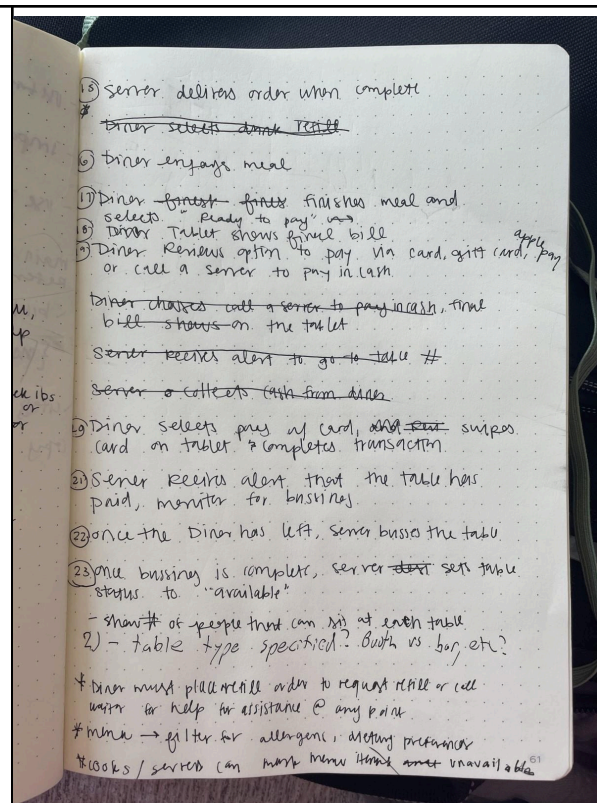 15 Server delivers order when complete
*
Diner selects drink refill
6 Diner enjoys meal
17 Diner finest fines finishes meal and
selects "Ready to pay"
18 Diner Tablet shows final bill
19 Diner Reviews option to pay via card, gift card, apple pay
or call a server to pay in cash
Diner chooses call a server to pay in cash, final
bill shows on the tablet
Server receives alert to go to table #
Server collects cash from diner
Diner selects pay w/ card, and swipes
card on tablet & completes transaction
21 Server receives alert that the table has
paid, monitor for bussing
22 once the Diner has left, server busses the table
23 once bussing is complete, server sets table
status to "available"
- show # of people that can sit at each table
2) - table type specified? Booth vs bar, etc?
* Diner must place refill order to request refill or call
waiter for help for assistance @ any point
* menu → filter for allergens, dietary preferences
* cooks / servers can mark menu items unavailable
61
M,
up
ibs
or
or